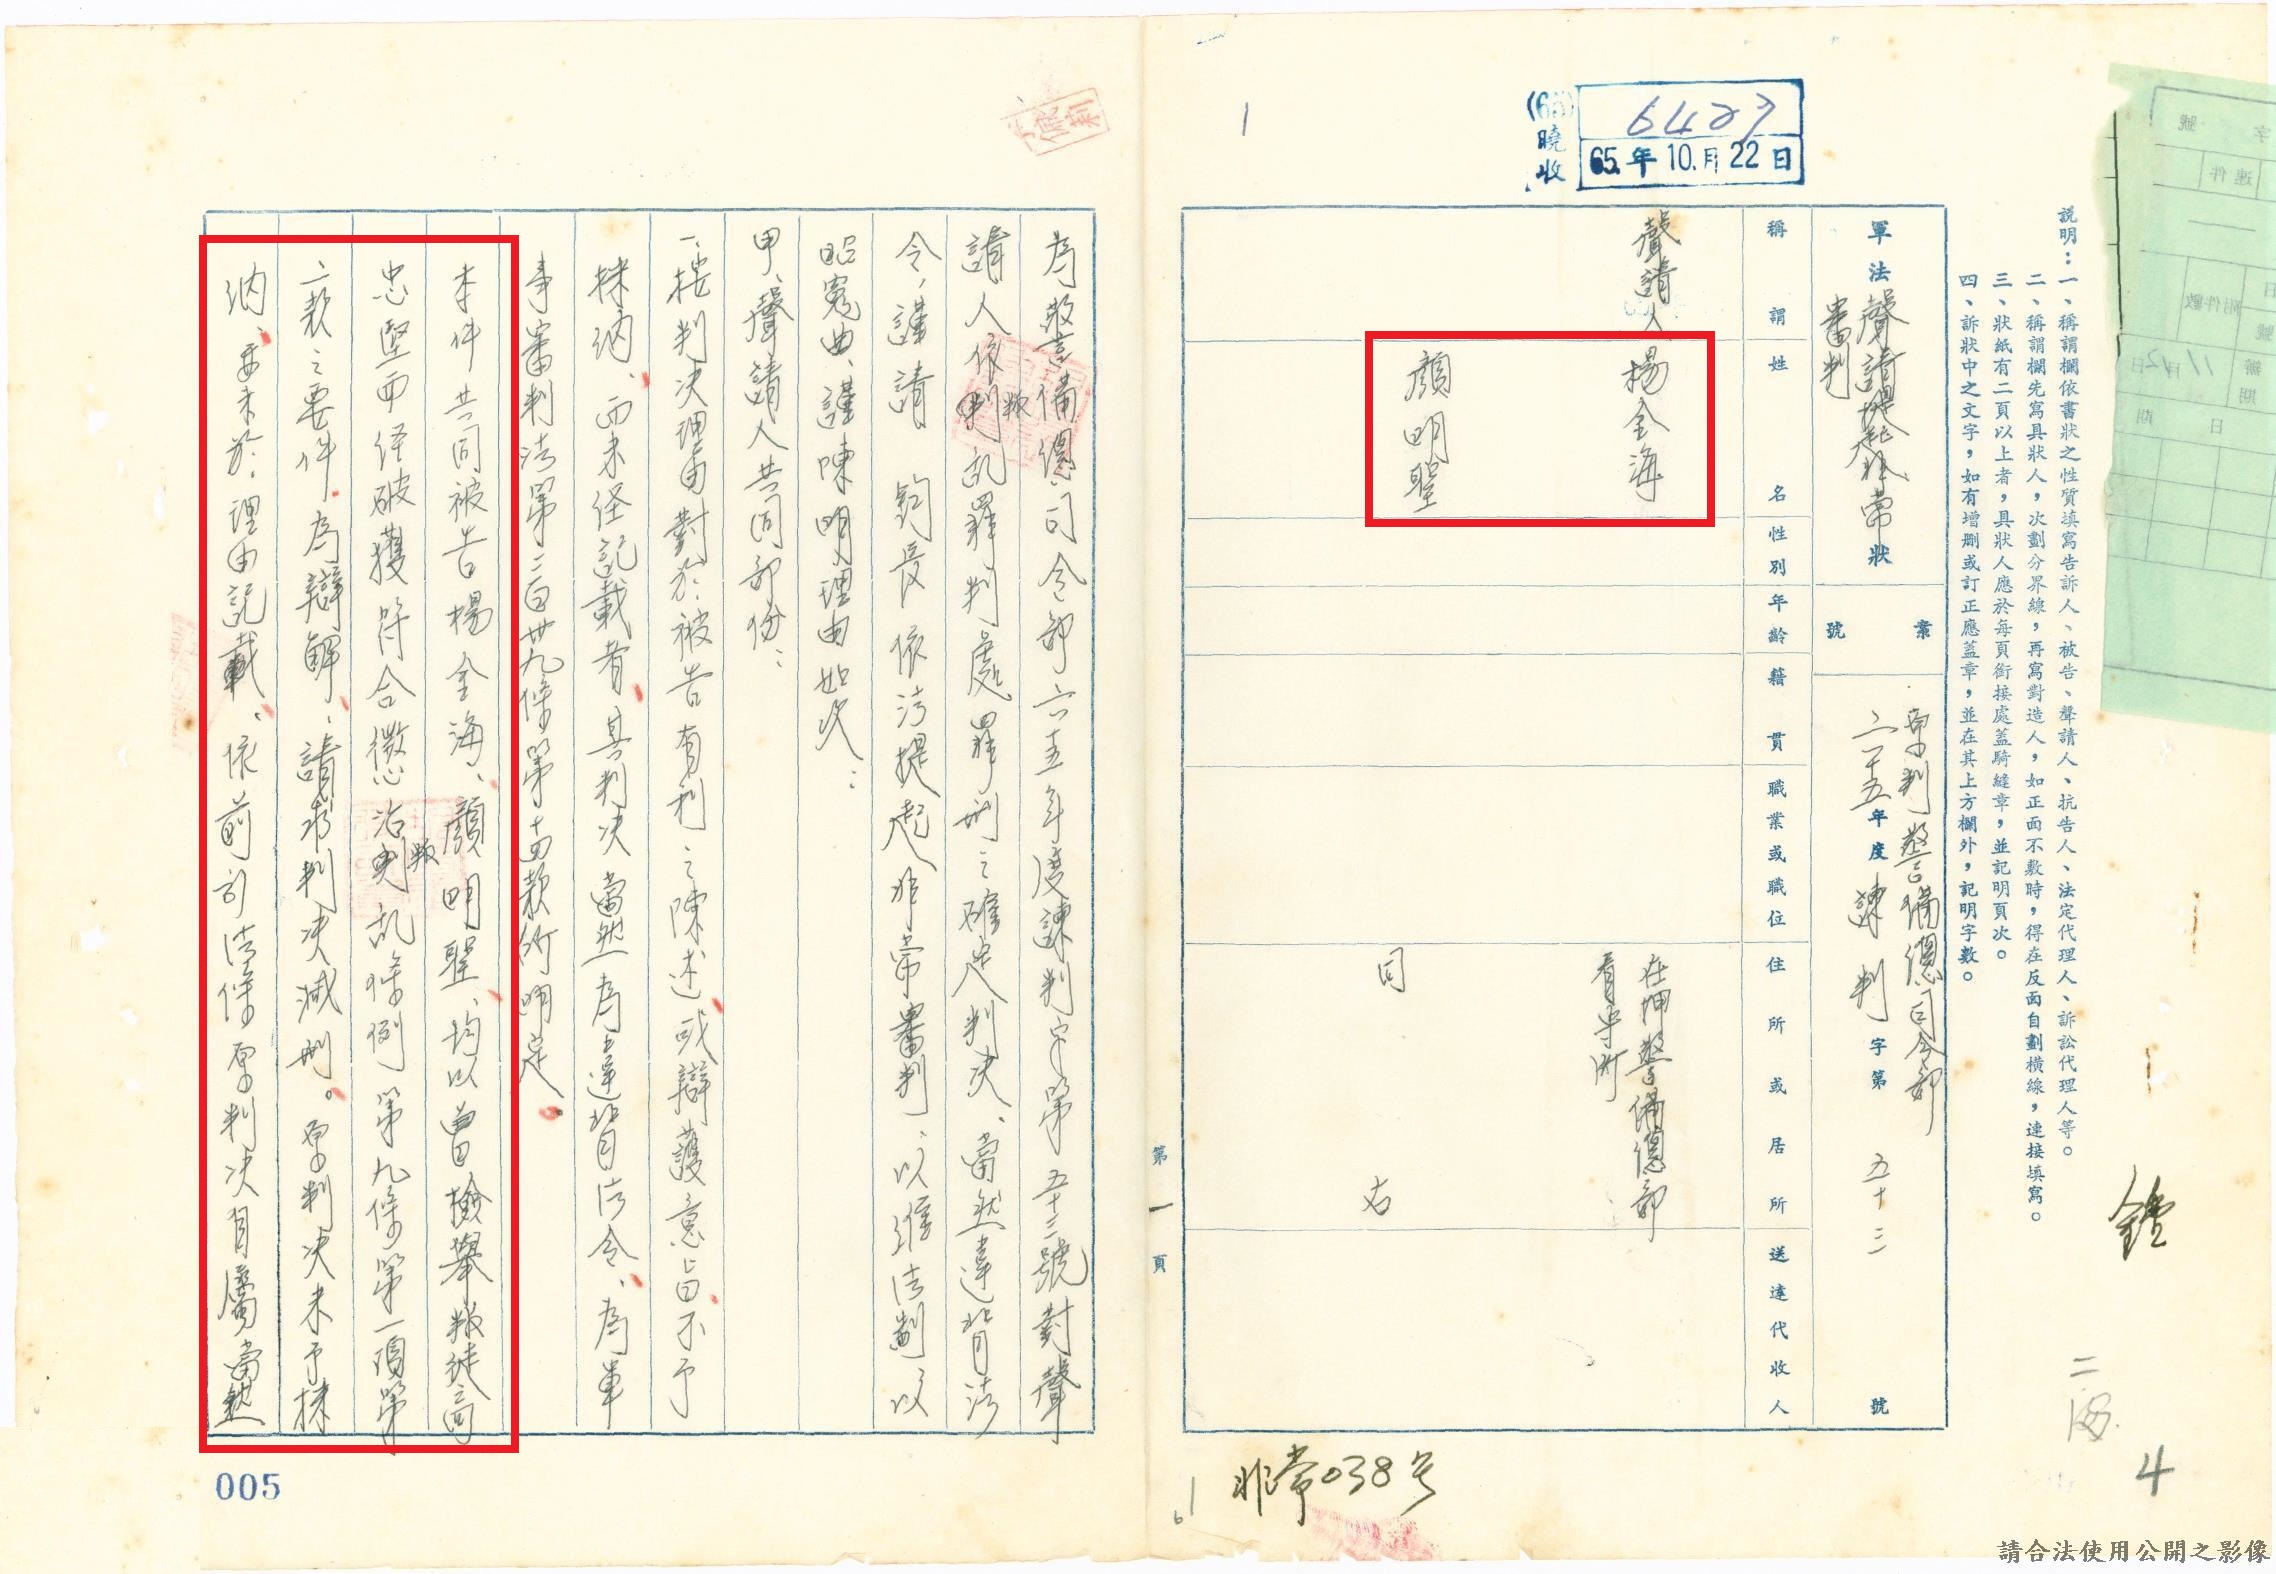 說明：一、稱謂欄依書狀之性質填寫告訴人、被告、聲請人、抗告人、法定代理人、訴訟代理人等。
二、稱謂欄先寫具狀人，次劃分界線，再寫對造人，如正面不敷時，得在反面自劃橫線，連接填寫。
三、狀紙有二頁以上者，具狀人應於每頁銜接處蓋騎縫章，並記明頁次。
四、訴狀中之文字，如有增刪或訂正應蓋章，並在其上方欄外，記明字數。
(65)曉收
6427
65.年10.月22日
1
軍法聲請提起非常審判狀
案號
原判警備總司令部
六十五年度諫判字第五十三號
稱謂
姓名
性別
年齡
籍貫
職業或職位
住所或居所
送達代收人
聲請人
楊金海
在押警備總部
看守所
顏明聖
同右
第一頁
為敬言備總司令部六五年度諫判字第五十三號對聲
請人依叛亂罪判處罪刑之確定判決、當然違背法
令，謹請　鈞長　依法提起非常審判、以維法制、以
昭冤曲、謹陳明理由如次：
甲、聲請人共同部份：
一、按判決理由對於被告有利之陳述或辯護意旨不予
採納、而未經記載者、其判決當然為違背法令、為軍
事審判法第二百卅九條第十四款所明定。
本件共同被告楊金海、顏明聖、均以曾檢舉叛徒高
忠堅而經破獲符合懲治叛亂條例第九條第一項第
二款之要件為辯解、請求判決減刑。原判決未予採
納、要未於理由記載、依前引法條原判決自屬當然
005
非常038号
4
鐘
字　號
連件
附件數
11月12日
辦期
日期
請合法使用公開之影像